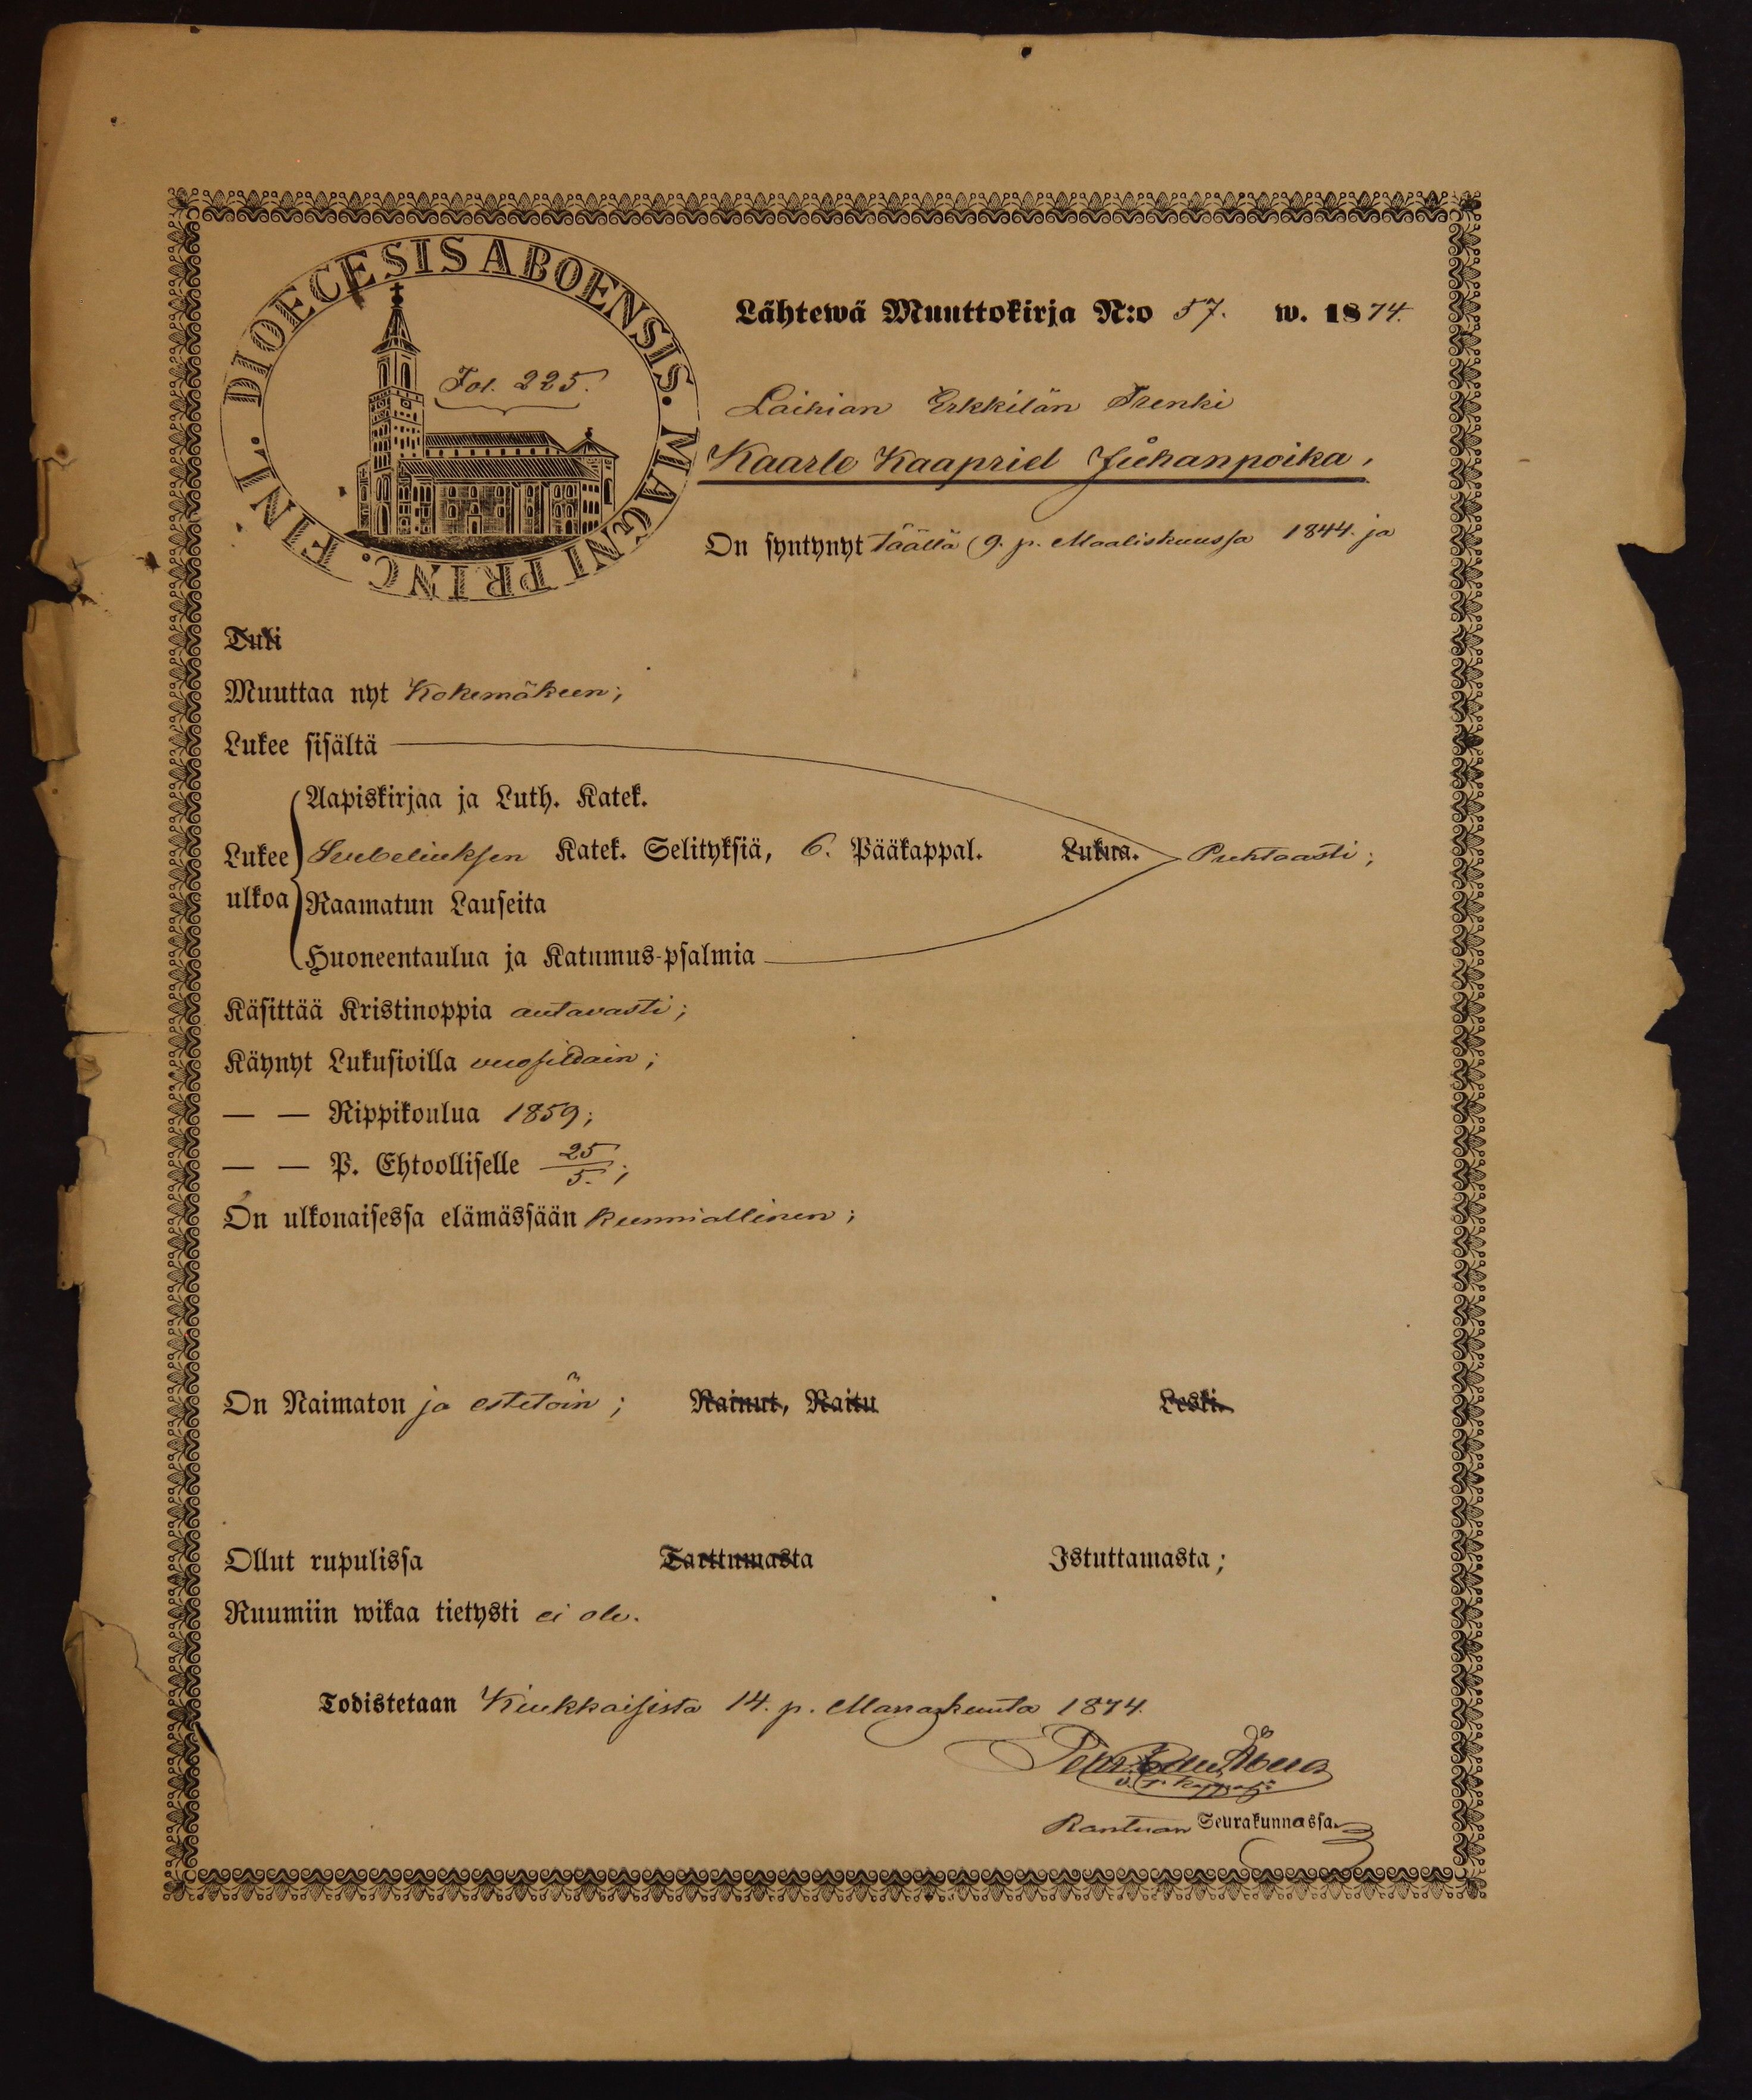 DIOECESIS ABOENSIS. MAGNI PRINC. FINL.
Fol. 225.
Lähtewä Muuttokirja N:o 57. w. 1874.
Laihian Erkkilän Trenki
Kaarle Kaapriel Juhanpoika,
On syntynyt täällä 9. p. Maaliskuussa 1844. ja
Tuli
Muuttaa nyt Kokemäkeen;
Lukee sisältä
Aapiskirjaa ja Luth. Katek.
Lukee Svebeliuksen Katek. Selityksiä, 6. Pääkappal. Lukua. Puhtaasti;
ulkoa Raamatun Lauseita
Huoneentaulua ja Katumus-psalmia
Käsittää Kristinoppia autavasti;
Käynyt Lukusioilla vuosittain;
— — Rippikoulua 1859;
— — P. Ehtoolliselle 25/5.;
On ulkonaisessa elämässään kunniallinen;
On Naimaton ja estetöin; Nainut, Naitu Leski.
Ollut rupulissa Tarttumasta Istuttamasta;
Ruumiin wikaa tietysti ei ole.
Todistetaan Kiukkaisista 14. p. Marraskuuta 1874.
Seurakunnassa.